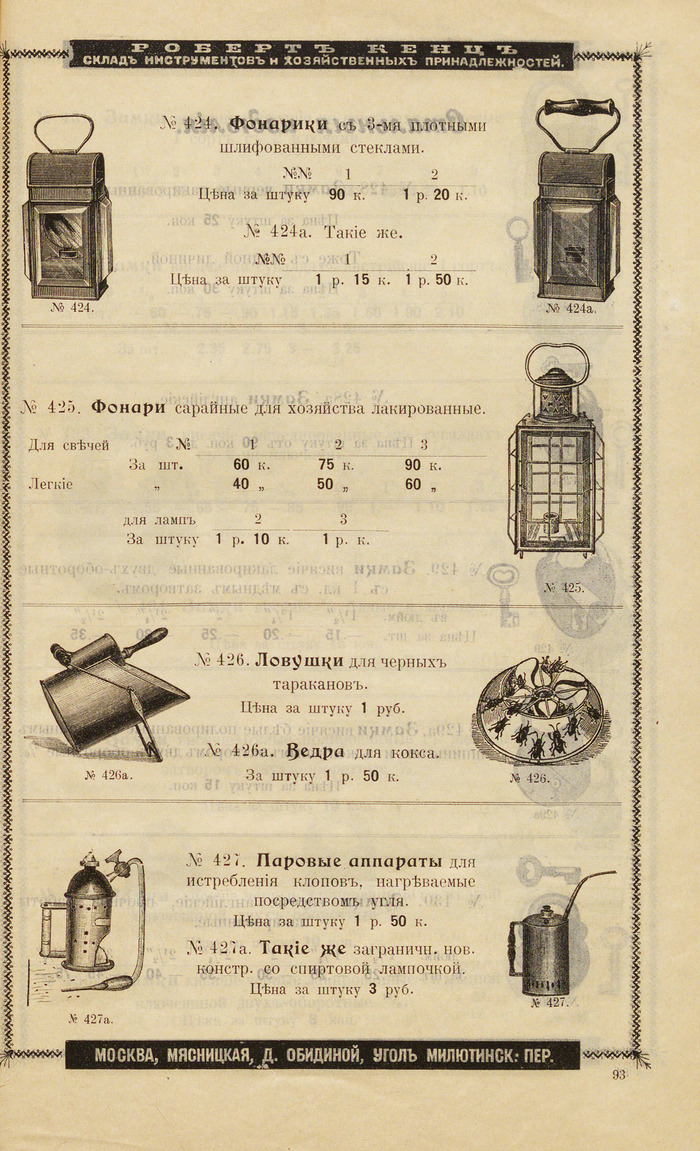 РОБЕРТЪ КЕНЦЪ
СКЛАДЪ ИНСТРУМЕНТОВЪ И ХОЗЯЙСТВЕННЫХЪ ПРИНАДЛЕЖНОСТЕЙ.
№ 424. Фонарики съ 3-мя плотными
шлифованными стеклами.
№№ 1 2
Цѣна за штуку 90 к. 1 р. 20 к.
№ 424а. Такіе же.
№№ 1 2
Цѣна за штуку 1 р. 15 к. 1 р. 50 к.
№ 424.
№ 424а.
№ 425. Фонари сарайные для хозяйства лакированные.
Для свѣчей № 1 2 3
За шт. 60 к. 75 к. 90 к.
Легкіе „ 40 „ 50 „ 60 „
для лампъ 2 3
За штуку 1 р. 10 к. 1 р. к.
№ 425.
№ 426. Ловушки для черныхъ
таракановъ.
Цѣна за штуку 1 руб.
№ 426а. Ведра для кокса.
За штуку 1 р. 50 к.
№ 426а.
№ 426.
№ 427. Паровые аппараты для
истребленія клоповъ, нагрѣваемые
посредствомъ угля.
Цѣна за штуку 1 р. 50 к.
№ 427а. Такіе же загранични. нов.
констр. со спиртовой лампочкой.
Цѣна за штуку 3 руб.
№ 427.
№ 427а.
МОСКВА, МЯСНИЦКАЯ, Д. ОБИДИНОЙ, УГОЛЪ МИЛЮТИНСК: ПЕР.
93